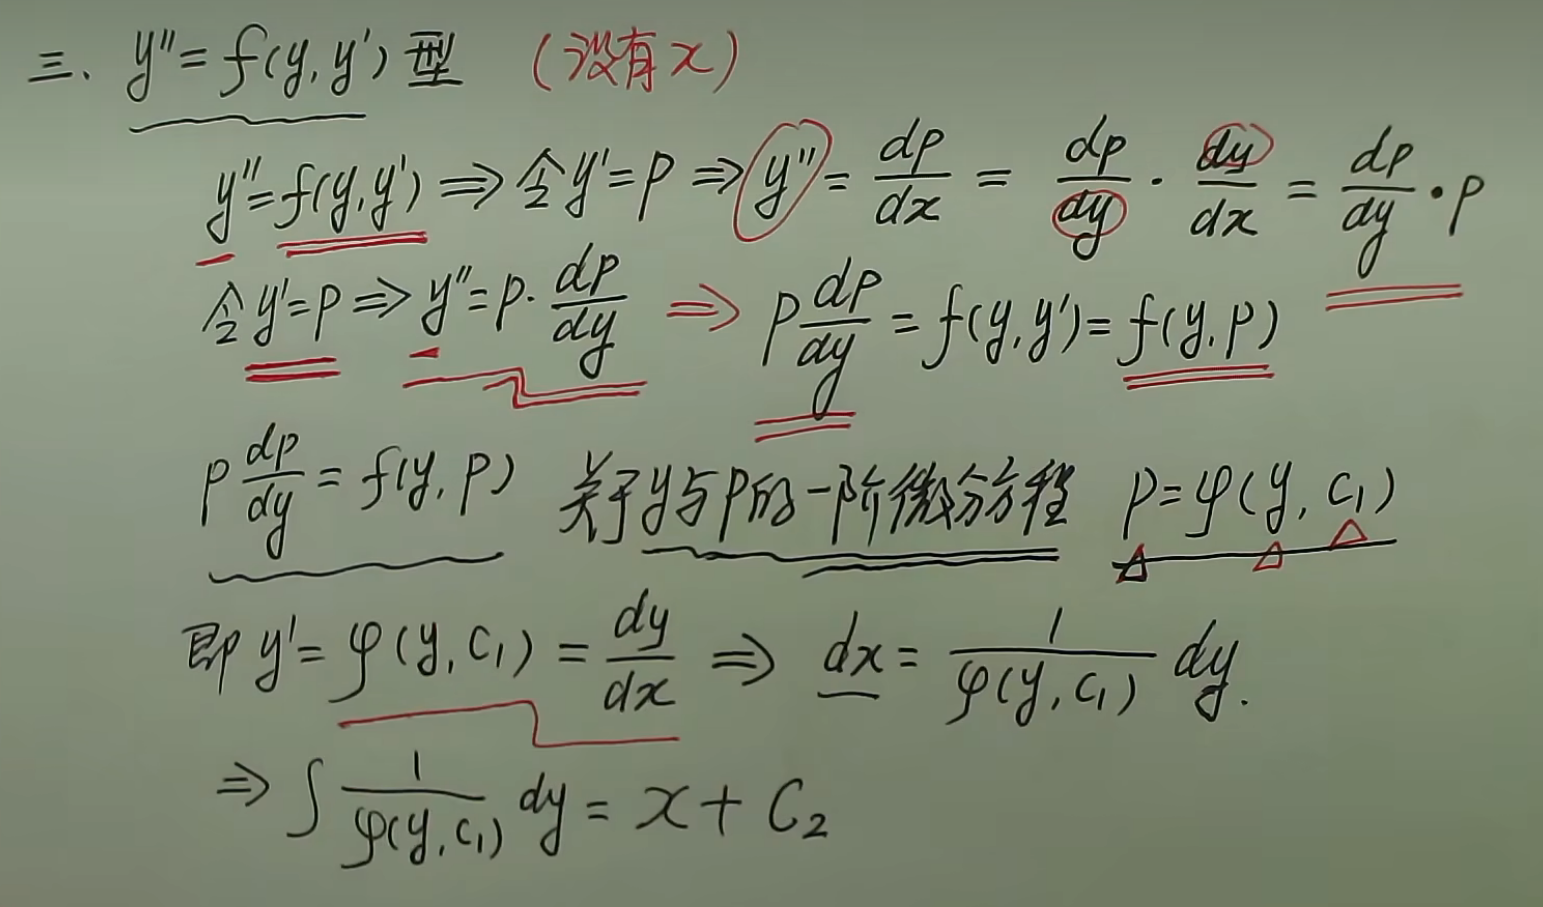 三、y''=f(y,y')型 (没有x)
y''=f(y,y')⇒令y'=p⇒y''=dp/dx=dp/dy·dy/dx=dp/dy·p
令y'=p⇒y''=p·dp/dy⇒p dp/dy=f(y,y')=f(y,p)
p dp/dy=f(y,p) 关于y与p的一阶微分方程 p=φ(y,c₁)
即y'=φ(y,c₁)=dy/dx⇒dx=1/φ(y,c₁) dy.
⇒∫1/φ(y,c₁) dy=x+C₂